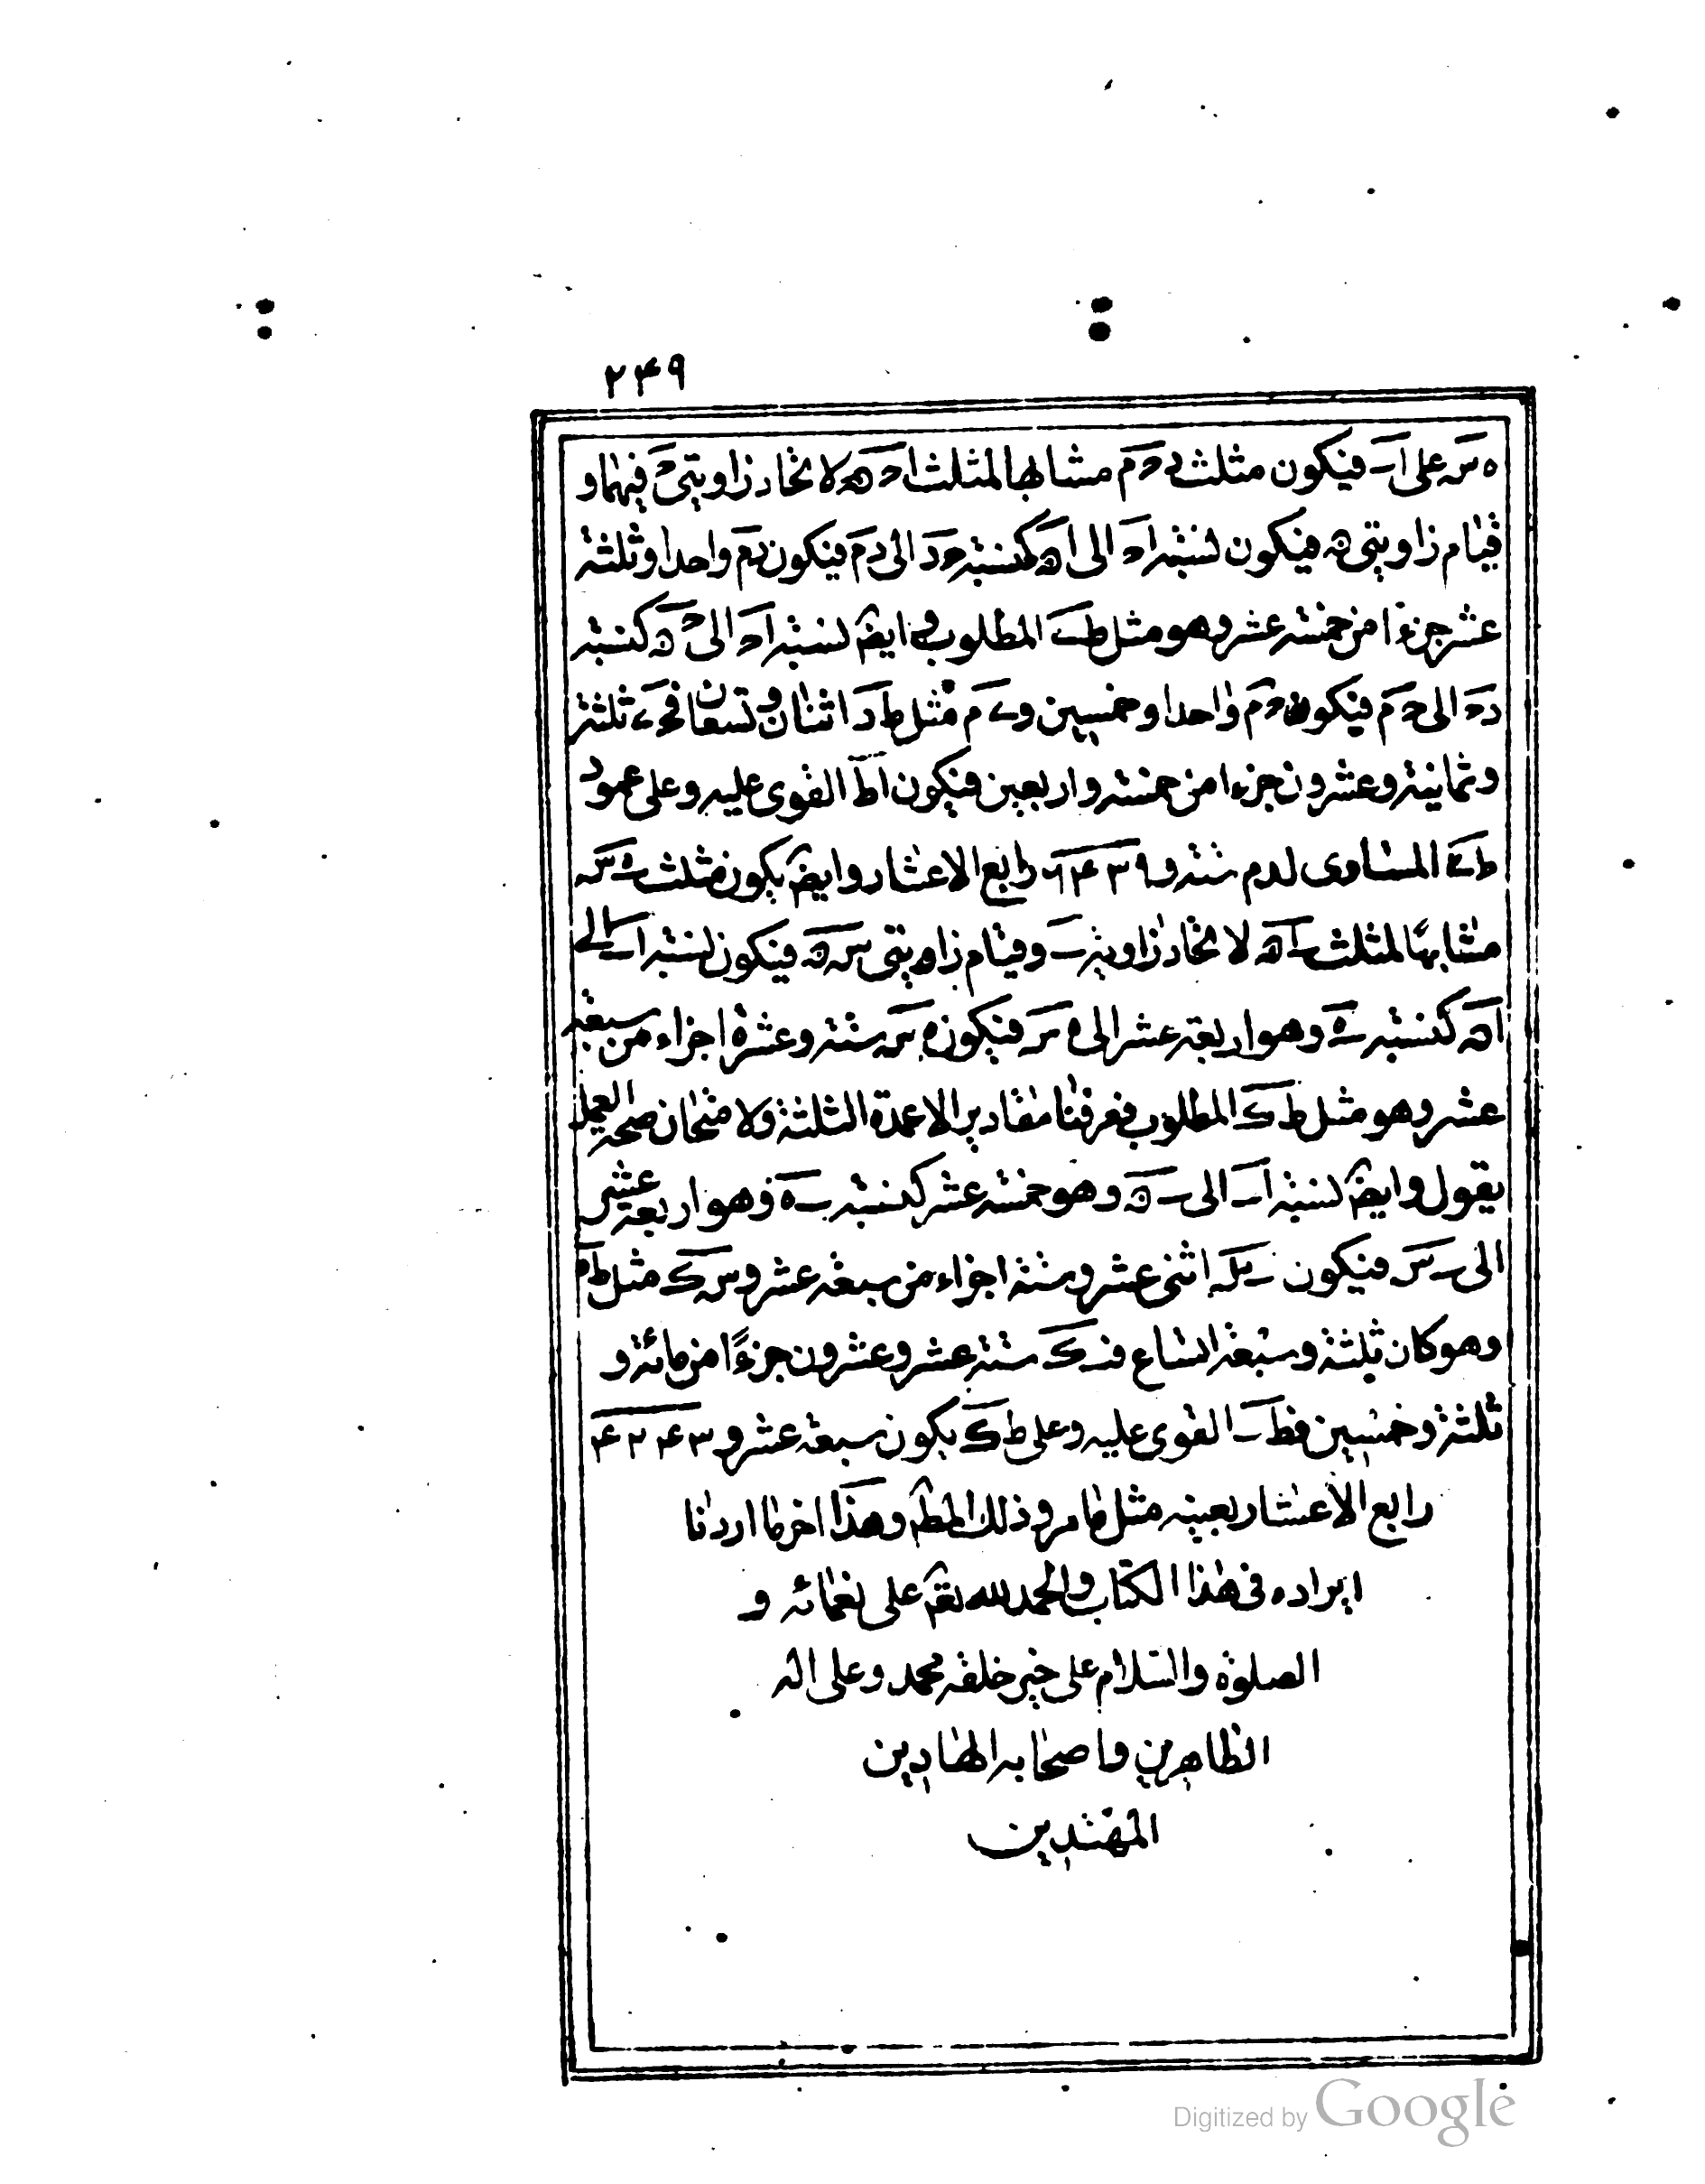 ٢٤٩
ه س على ا ب فيكون مثلث د ح م مشابها لمثلث ا ح ه لاتحاد زاويتى ح فيهما و
قيام زاويتى ه م فيكون نسبة ا ح الى ا ه كنسبة ح د الى د م فيكون د م واحدا وثلثة
عشر جزءا من خمسة عشر وهو مثل ط المطلوب وايضا نسبة ا ح الى ح ه كنسبة
د ح الى ح م فيكون ح م واحدا وخمسين و م مثل ط د اثنان وتسعان ثلثة
وثمانية وعشرون جزءا من خمسة واربعين فيكون ا ط القوى عليه وعلى عمود
ط المساوى لدم ستة و ٦٤٣٩ رابع الاعشار وايضا يكون مثلث ب ه س
مشابها لمثلث ب ا ه لاتحاد زاوية ب وقيام زاويتى س ه فيكون نسبة ا ب الى
ا ه كنسبة ب ه وهو اربعة عشر الى ه س فيكون ه س ستة وعشرة اجزاء من سبعة
عشر وهو مثل ط ك المطلوب فعرفنا مقادير الاعمدة الثلثة ولامتحان صحة العمل
يقول وايضا نسبة ا ب الى ب ه وهو خمسة عشر كنسبة ب ه وهو اربعة عشر
الى ب س فيكون ب س اثنى عشر وستة اجزاء من سبعة عشر وس ك مثل ط ه
وهو كان ثلثة وسبعة اتساع فب ك ستة عشر وعشرون جزءًا من مائة و
ثلثة وخمسين فط ب القوى عليه وعلى ط ك يكون سبعة عشر و ٤٢٤٣
رابع الاعشار بعينه مثل ما مر وذلك المط وهذا اخر ما اردنا
ايراده فى هذا الكتاب والحمد لله تع على نعمائه و
الصلوة والسلام على خير خلقه محمد وعلى اله
الطاهرين واصحابه الهادين
المهتدين
Digitized by Google